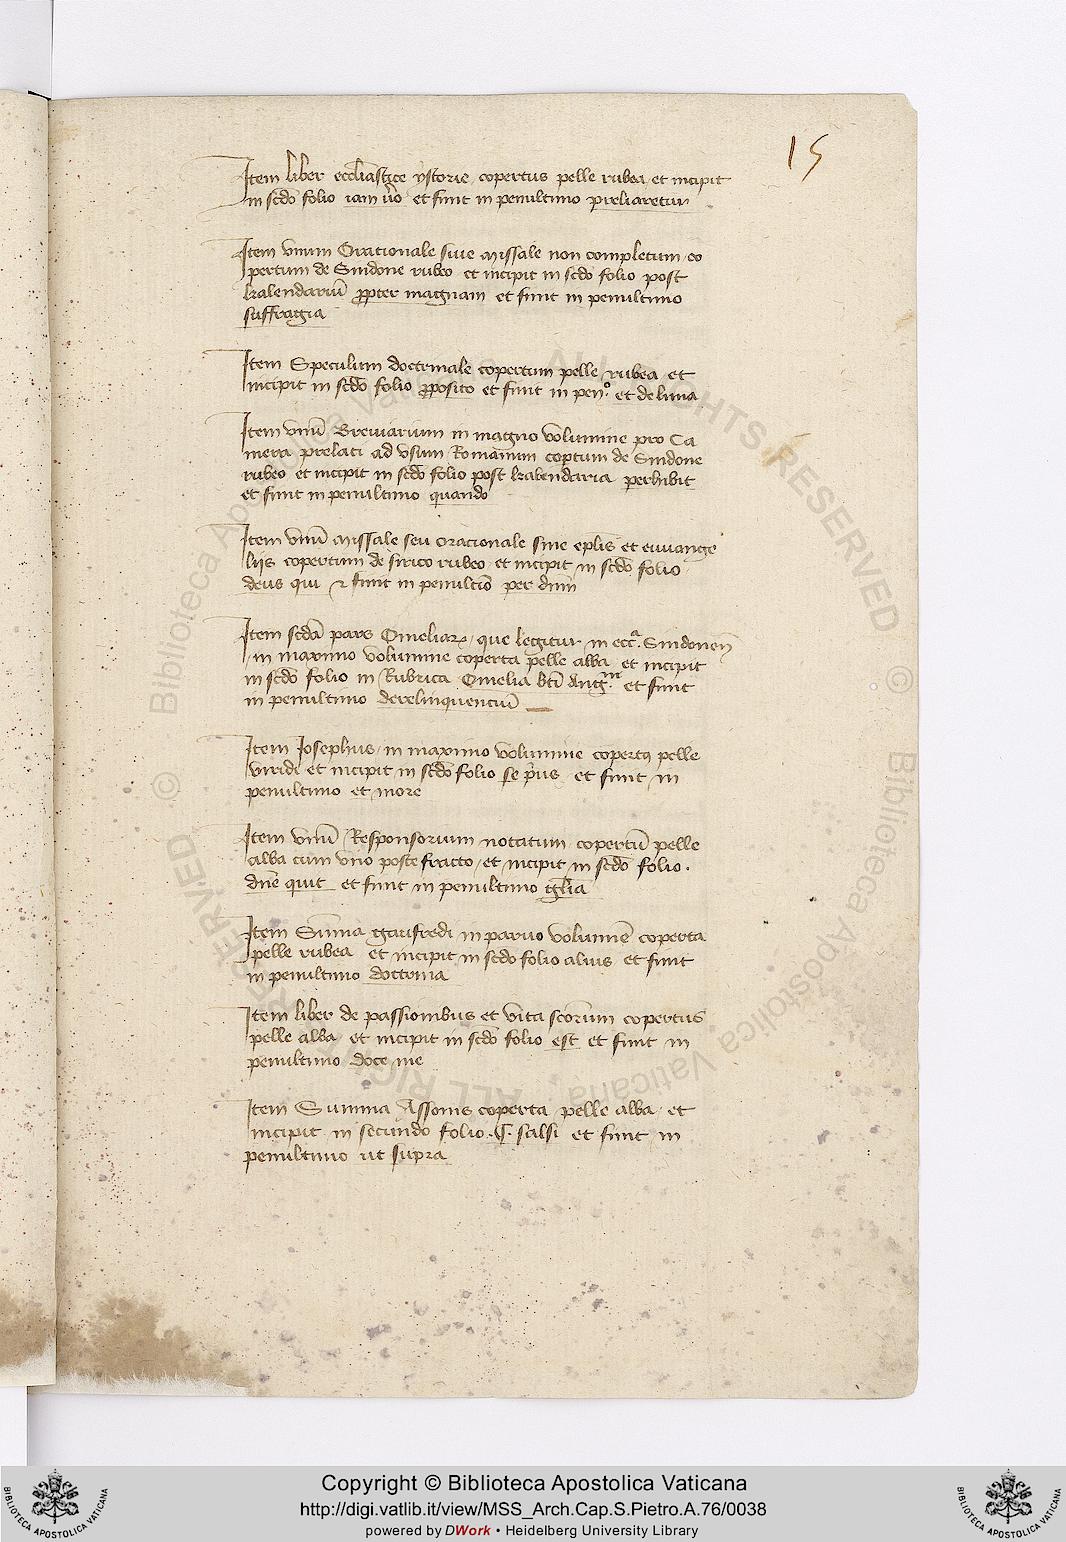 15
Item liber eccliastice ystorie copertus pelle rubea et incipit
in scdo folio iam vo et finit in penultimo preliaretur
Item vnum Orationale siue missale non completum co
pertum de Sindone rubeo et incipit in scdo folio post
kalendariu ppter magnam et finit in penultimo
suffragia
Item Speculum doctrinale copertum pelle rubea et
incipit in scdo folio pposito et finit in pen.o et de luna
Item vnu Breuiarium in magno volumine pro Ca
mera prelati ad vsum Romanum coptum de Sindone
rubeo et incipit in scdo folio post kalendaria perhibit
et finit in penultimo quando
Item vnu missale seu oracionale sine eplis et euuange
liis copertum de sirico rubeo et incipit in scdo folio
deus qui et finit in penultio per dnm
Item scda pars Omeliar que legitur in ecc.a Sindonen
in maximo volumine coperta pelle alba et incipit
in scdo folio in Rubrica Omelia bti Aug.ni et finit
in penultimo derelinquenciu
Item Josephus in maximo volumine copertus pelle
viridi et incipit in scdo folio se pus et finit in
penultimo et more
Item vnu Responsorium notatum copertu pelle
alba cum vno poste fracto et incipit in scdo folio.
dne quit et finit in penultimo glia
Item Suma gaufredi in paruo volume coperta
pelle rubea et incipit in scdo folio alius et finit
in penultimo doctrina
Item liber de passionibus et vita scorum copertus
pelle alba et incipit in scdo folio est et finit in
penultimo doce me
Item Summa Assonis coperta pelle alba et
incipit in secundo folio . C. falsi et finit in
penultimo ut supra
© Biblioteca Apostolica Vaticana ALL RIGHTS RESERVED
© Biblioteca Apostolica Vaticana ALL RIGHTS RESERVED
BIBLIOTECA APOSTOLICA VATICANA
Copyright © Biblioteca Apostolica Vaticana
http://digi.vatlib.it/view/MSS_Arch.Cap.S.Pietro.A.76/0038
powered by DWork • Heidelberg University Library
BIBLIOTECA APOSTOLICA VATICANA